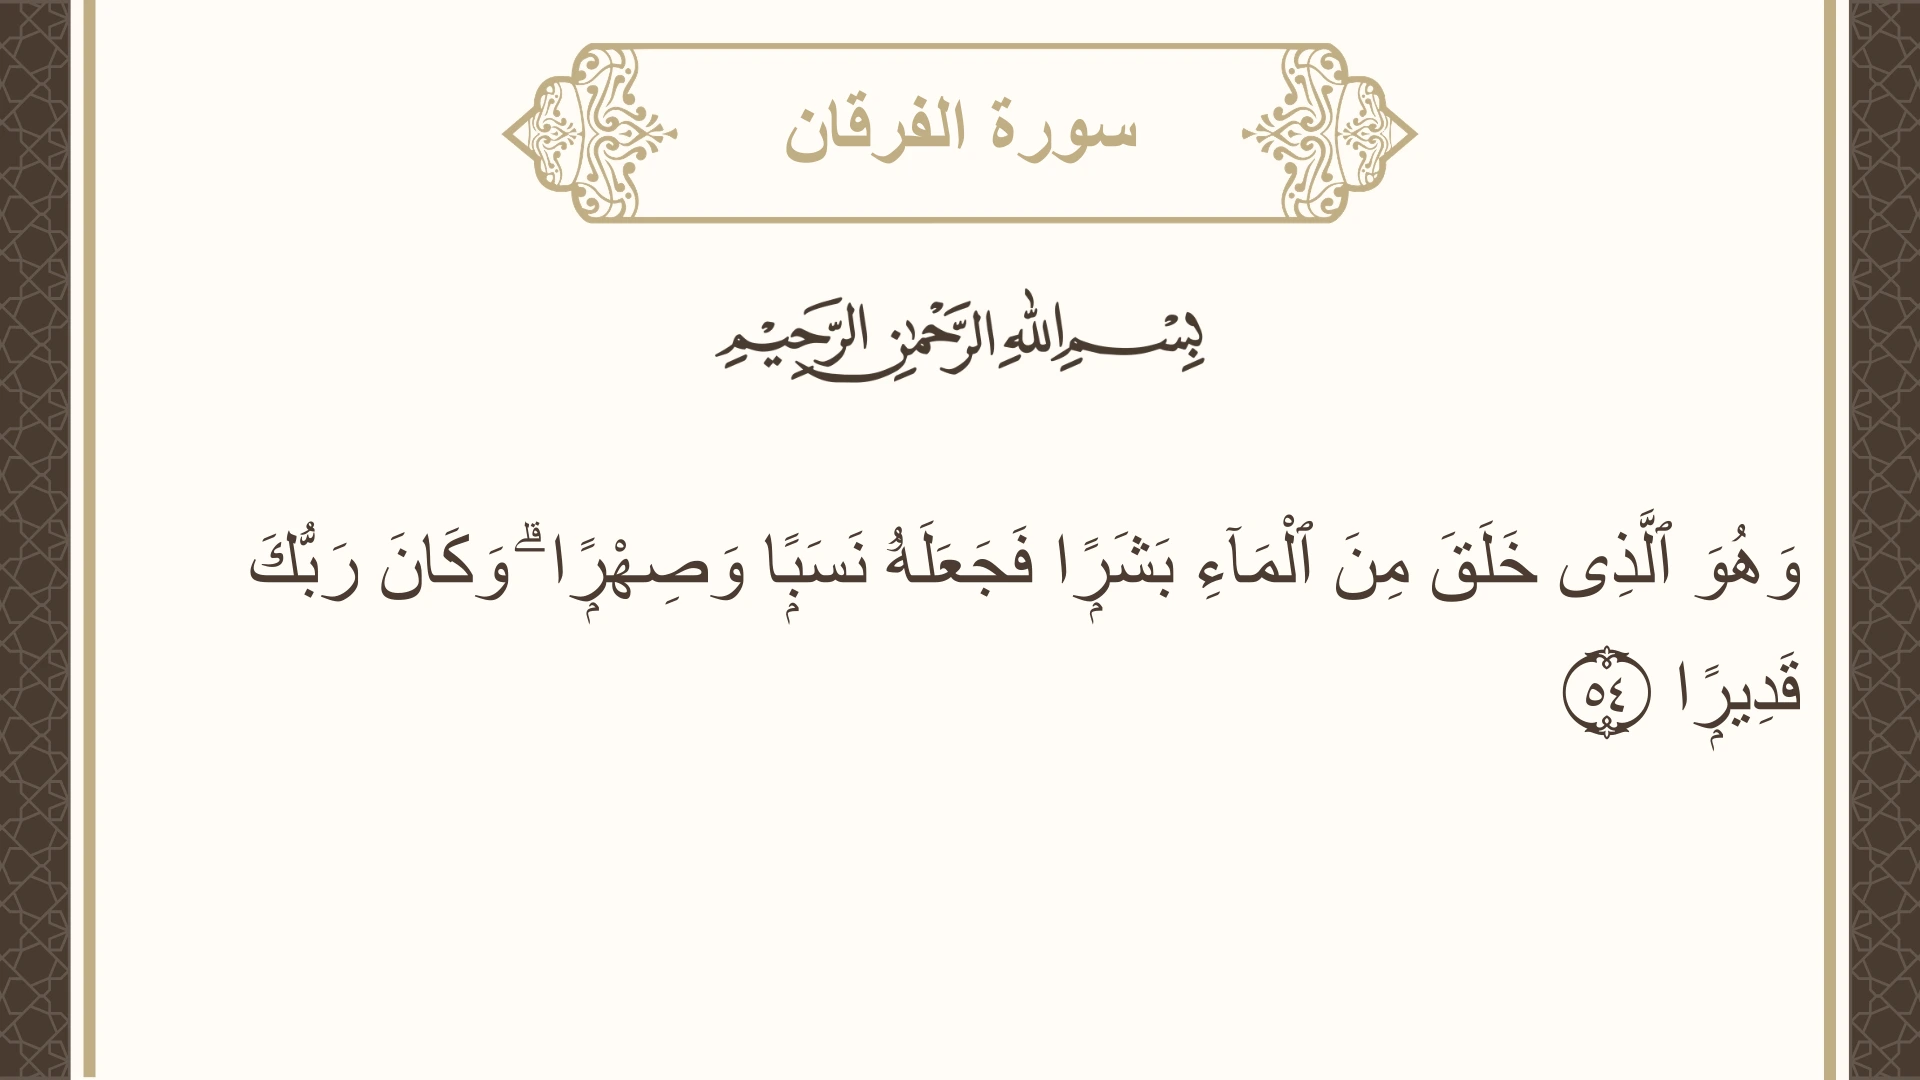 سورة الفرقان
بِسْمِ اللهِ الرَّحْمٰنِ الرَّحِيْمِ
وَهُوَ ٱلَّذِى خَلَقَ مِنَ ٱلْمَآءِ بَشَرًۭا فَجَعَلَهُۥ نَسَبًۭا وَصِهْرًۭا ۗ وَكَانَ رَبُّكَ
قَدِيرًۭا ٥٤